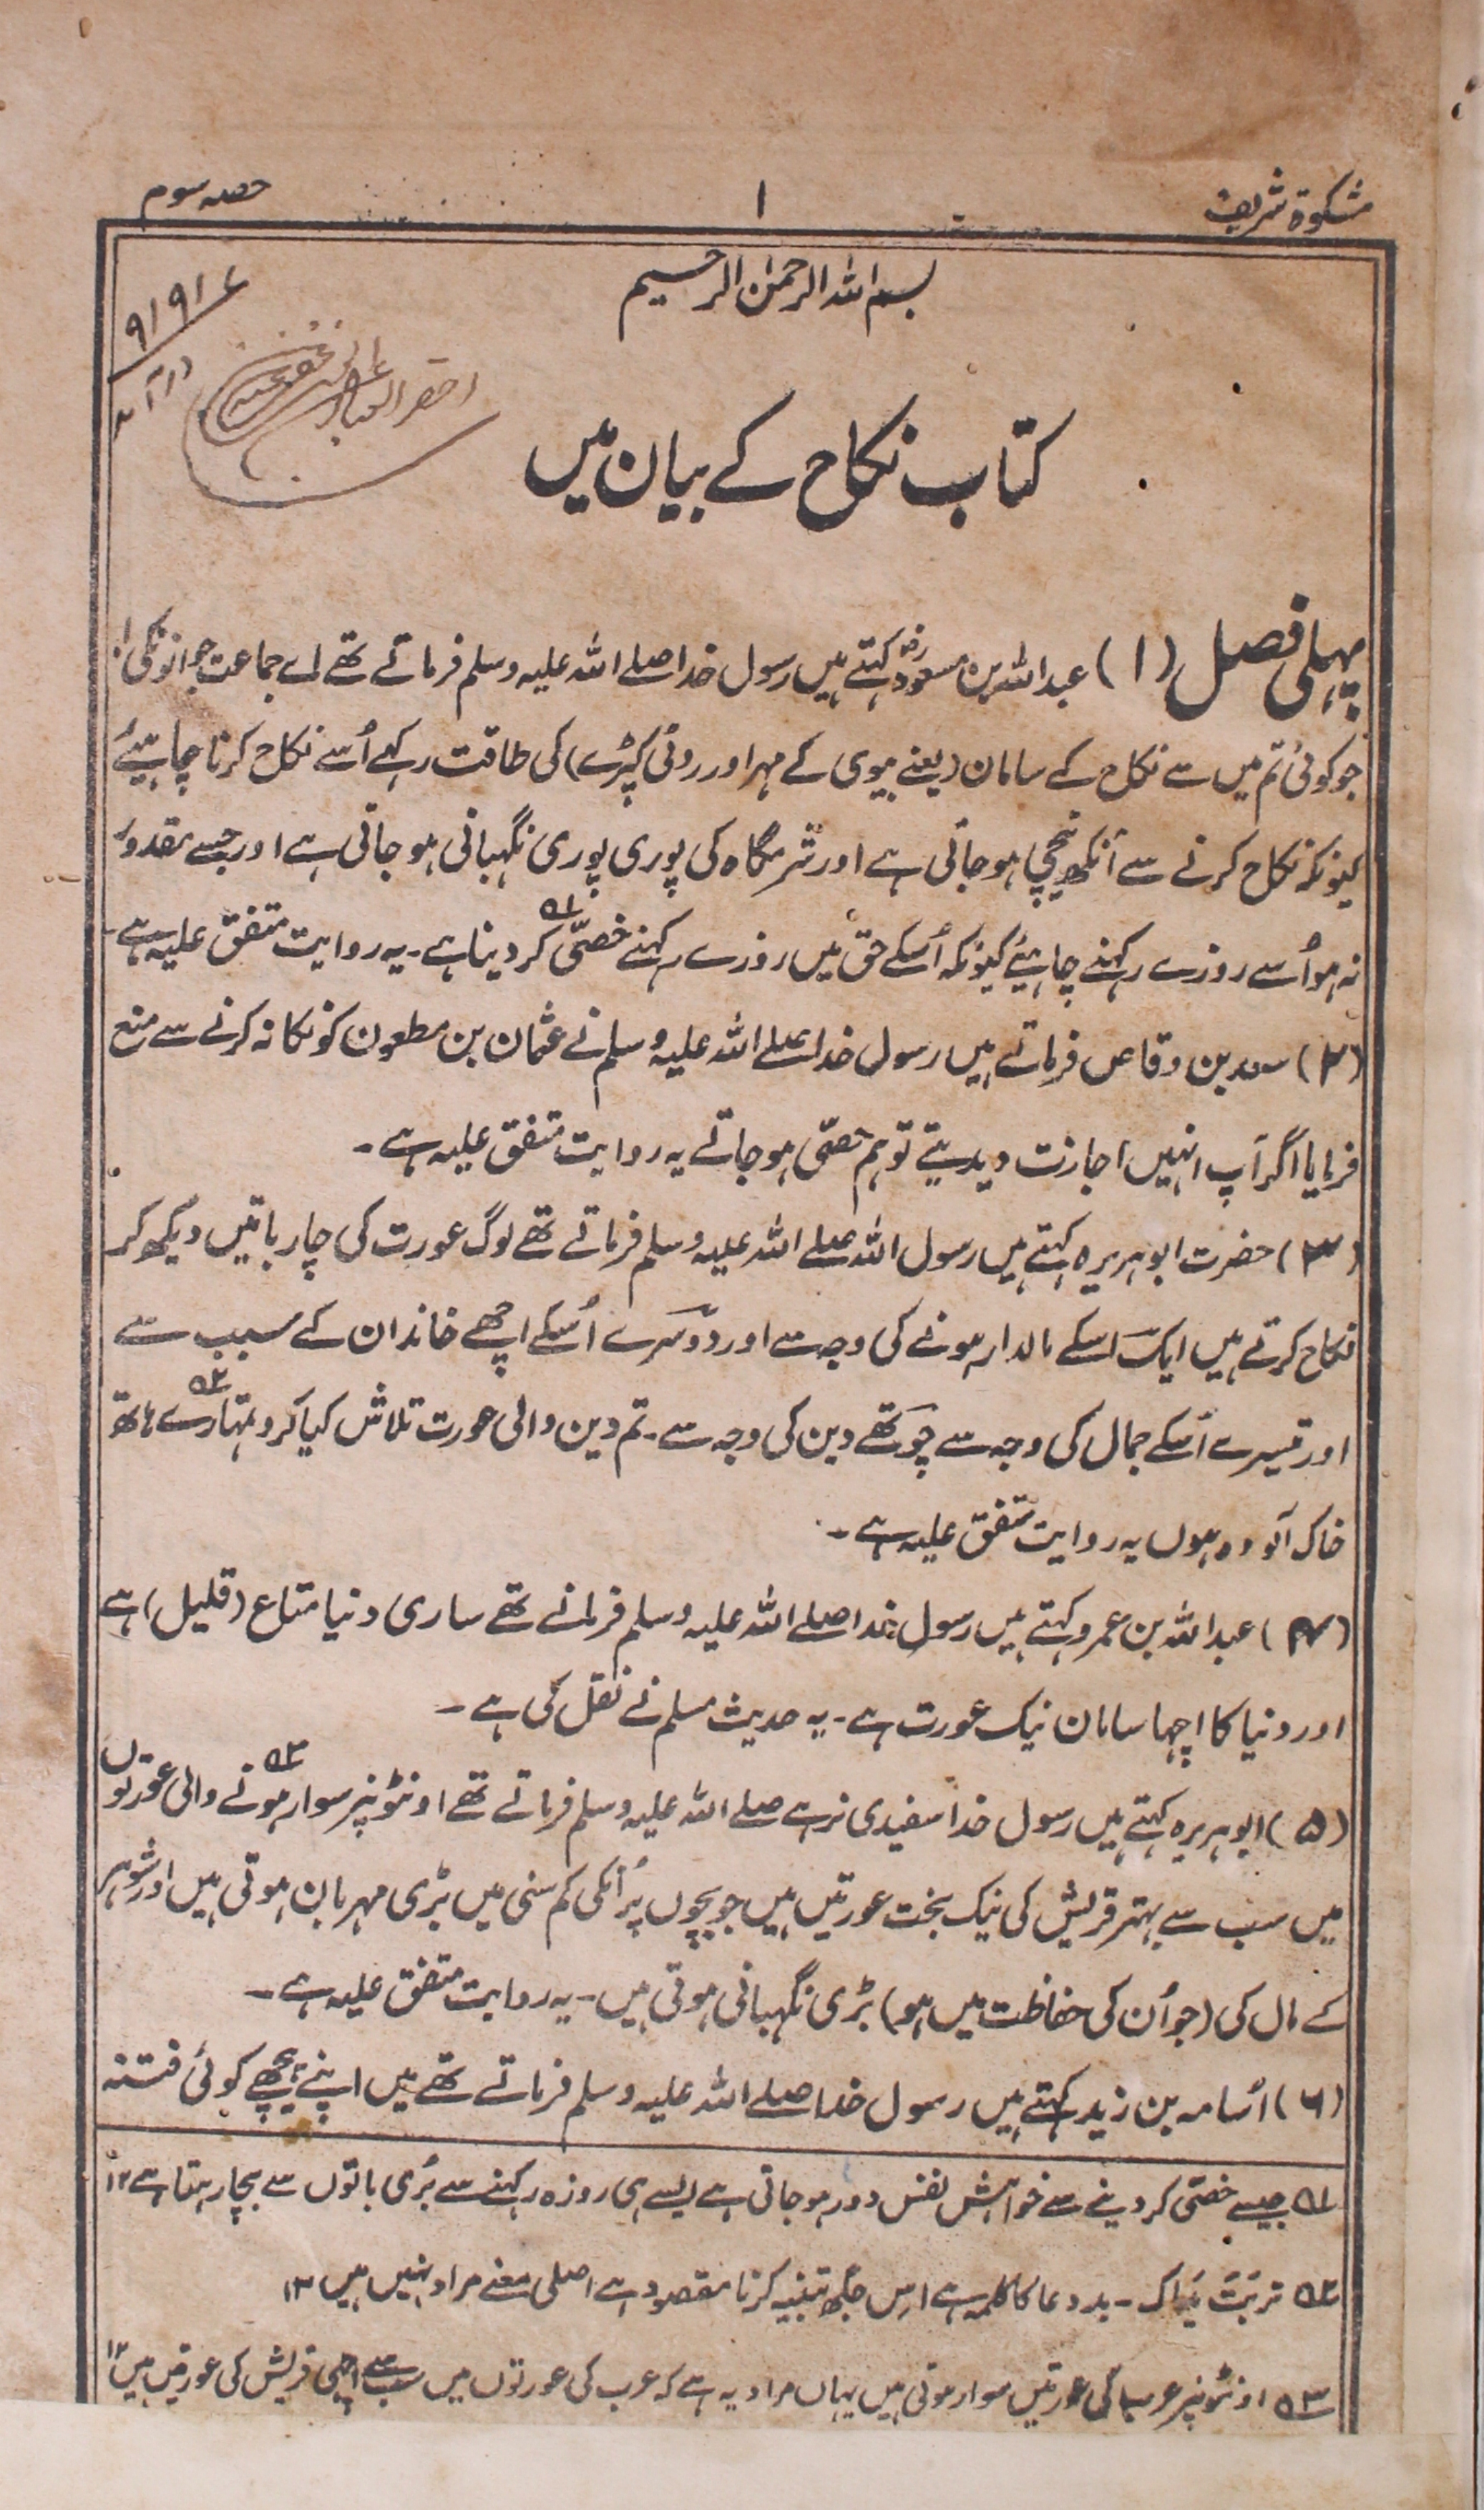 مشکوٰۃ شریف
۱
حصہ سوم
بسم اللہ الرحمٰن الرحیم
۹۱۹۱۷
کتاب نکاح کے بیان میں
پہلی فصل (۱) عبداللہ بن مسعودؓ کہتے ہیں رسول خدا صلے اللہ علیہ وسلم فرماتے تھے اے جماعت جوانونکی!
جو کوئی تم میں سے نکاح کے سامان (یعنے بیوی کے مہر اور روٹی کپڑے) کی طاقت رکہے اُسے نکاح کرنا چاہیئے
کیونکہ نکاح کرنے سے آنکھ نیچی ہو جاتی ہے اور شرمگاہ کی پوری پوری نگہبانی ہو جاتی ہے اور جسے مقدور
نہ ہو اُسے روزے رکہنے چاہیئے کیونکہ اُسکے حق میں روزے رکہنے خصّی ۱؎ کر دینا ہے۔ یہ روایت متفق علیہ ہے۔
(۲) سعد بن وقاص فرماتے ہیں رسول خدا صلے اللہ علیہ وسلم نے عثمان بن مطعون کو نکانہ کرنے سے منع
فرمایا اگر آپ انہیں اجازت دیدیتے تو ہم خصّی ہو جاتے یہ روایت متفق علیہ ہے۔
(۳) حضرت ابوہریرہ کہتے ہیں رسول اللہ صلے اللہ علیہ وسلم فرماتے تھے لوگ عورت کی چار باتیں دیکھ کر
نکاح کرتے ہیں ایک اسکے مالدار ہونے کی وجہ سے اور دوسرے اُسکے اچھے خاندان کے سبب سے
اور تیسرے اُسکے جمال کی وجہ سے چوتھے دین کی وجہ سے۔ تم دین والی عورت تلاش کیا کرو تمہارے ۲؎ ہاتھ
خاک آلودہ ہوں یہ روایت متفق علیہ ہے۔
(۴) عبداللہ بن عمرو کہتے ہیں رسول خدا صلے اللہ علیہ وسلم فرماتے تھے ساری دنیا متاع (قلیل) ہے
اور دنیا کا اچہا سامان نیک عورت ہے۔ یہ حدیث مسلم نے نقل کی ہے۔
(۵) ابوہریرہ کہتے ہیں رسول خدا صلے اللہ علیہ وسلم فرماتے تھے اونٹونپر سوار ہونے ۳؎ والی عورتوں
میں سب سے بہتر قریش کی نیک بخت عورتیں ہیں جو بچوں پر اُنکی کم سنی میں بڑی مہربان ہوتی ہیں اور شوہر
کے مال کی (جو اُن کی حفاظت میں ہو) بڑی نگہبانی ہوتی ہیں۔ یہ روایت متفق علیہ ہے۔
(۶) اُسامہ بن زید کہتے ہیں رسول خدا صلے اللہ علیہ وسلم فرماتے تھے میں اپنے پیچھے کوئی فتنہ
۱؎ جیسے خصّی کر دینے سے خواہش نفس دور ہو جاتی ہے ایسے ہی روزہ رکہنے سے بُری باتوں سے بچا رہتا ہے ۱۲
۲؎ تربَتْ یَداک۔ بد دعا کا کلمہ ہے اس جگہ تنبیہ کرنا مقصود ہے اصلی معنے مراد نہیں ہیں ۱۲
۳؎ اونٹونپر عرب کی عورتیں سوار ہوتی ہیں یہاں مراد یہ ہے کہ عرب کی عورتوں میں سب سے اچہی قریش کی عورتیں ہیں ۱۲